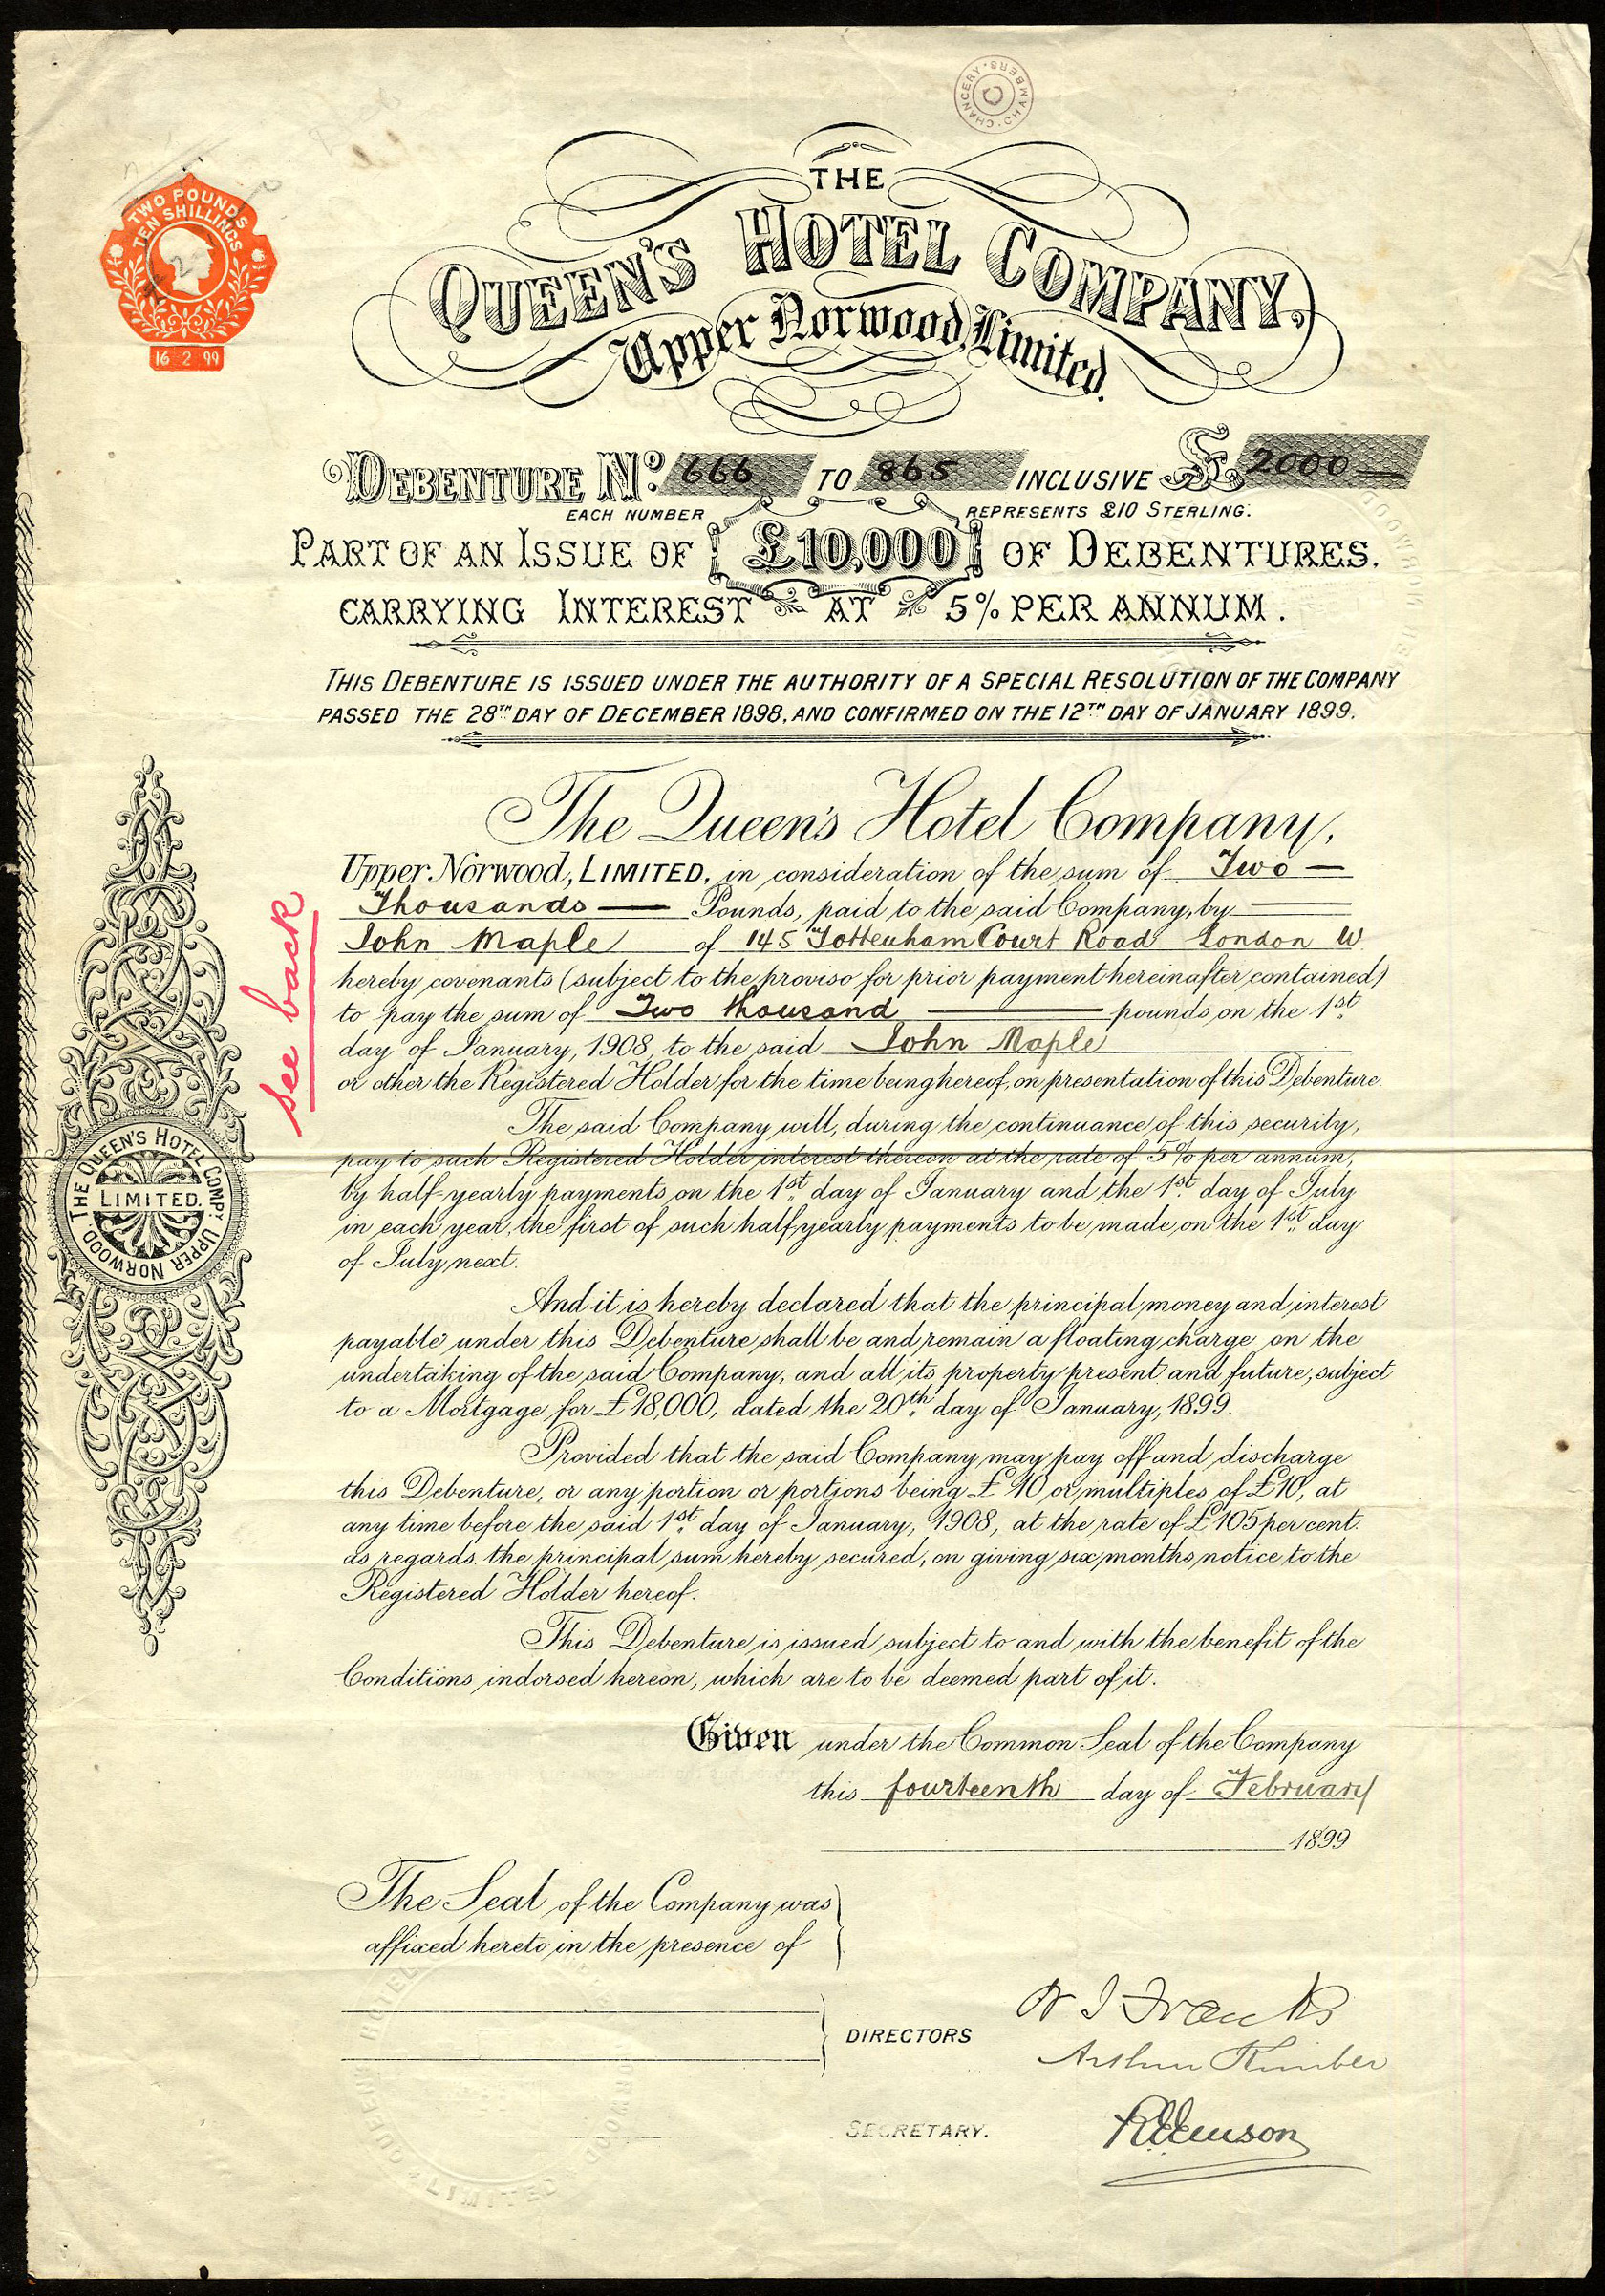 CHANCERY · CHAMBERS ·
TWO POUNDS
TEN SHILLINGS
16 2 99
THE
QUEEN'S HOTEL COMPANY,
Upper Norwood, Limited.
DEBENTURE No. 666 TO 865 INCLUSIVE £ 2000 —
EACH NUMBER REPRESENTS £10 STERLING.
PART OF AN ISSUE OF £10,000 OF DEBENTURES.
CARRYING INTEREST AT 5% PER ANNUM.
THIS DEBENTURE IS ISSUED UNDER THE AUTHORITY OF A SPECIAL RESOLUTION OF THE COMPANY
PASSED THE 28TH DAY OF DECEMBER 1898, AND CONFIRMED ON THE 12TH DAY OF JANUARY 1899.
The Queen's Hotel Company,
Upper Norwood, LIMITED, in consideration of the sum of Two —
Thousands — Pounds, paid to the said Company, by
John Maple of 145 Tottenham Court Road London W
hereby covenants (subject to the proviso for prior payment hereinafter contained)
to pay the sum of Two thousand — pounds on the 1st
day of January, 1908, to the said John Maple
or other the Registered Holder for the time being hereof, on presentation of this Debenture.
see back
The said Company will, during the continuance of this security,
pay to such Registered Holder interest thereon at the rate of 5% per annum,
by half-yearly payments on the 1st day of January and the 1st day of July
in each year, the first of such half yearly payments to be made on the 1st day
of July next.
THE QUEEN'S HOTEL COMPY. UPPER NORWOOD.
LIMITED.
And it is hereby declared that the principal money and interest
payable under this Debenture shall be and remain a floating charge on the
undertaking of the said Company, and all its property present and future, subject
to a Mortgage for £18,000, dated the 20th day of January, 1899.
Provided that the said Company may pay off and discharge
this Debenture, or any portion or portions being £10 or multiples of £10, at
any time before the said 1st day of January, 1908, at the rate of £105 per cent.
as regards the principal sum hereby secured, on giving six months notice to the
Registered Holder hereof.
This Debenture is issued subject to and with the benefit of the
Conditions indorsed hereon, which are to be deemed part of it.
Given under the Common Seal of the Company
this fourteenth day of February
1899
The Seal of the Company was
affixed hereto in the presence of
DIRECTORS
Arthur Kimber
SECRETARY.
LIMITED